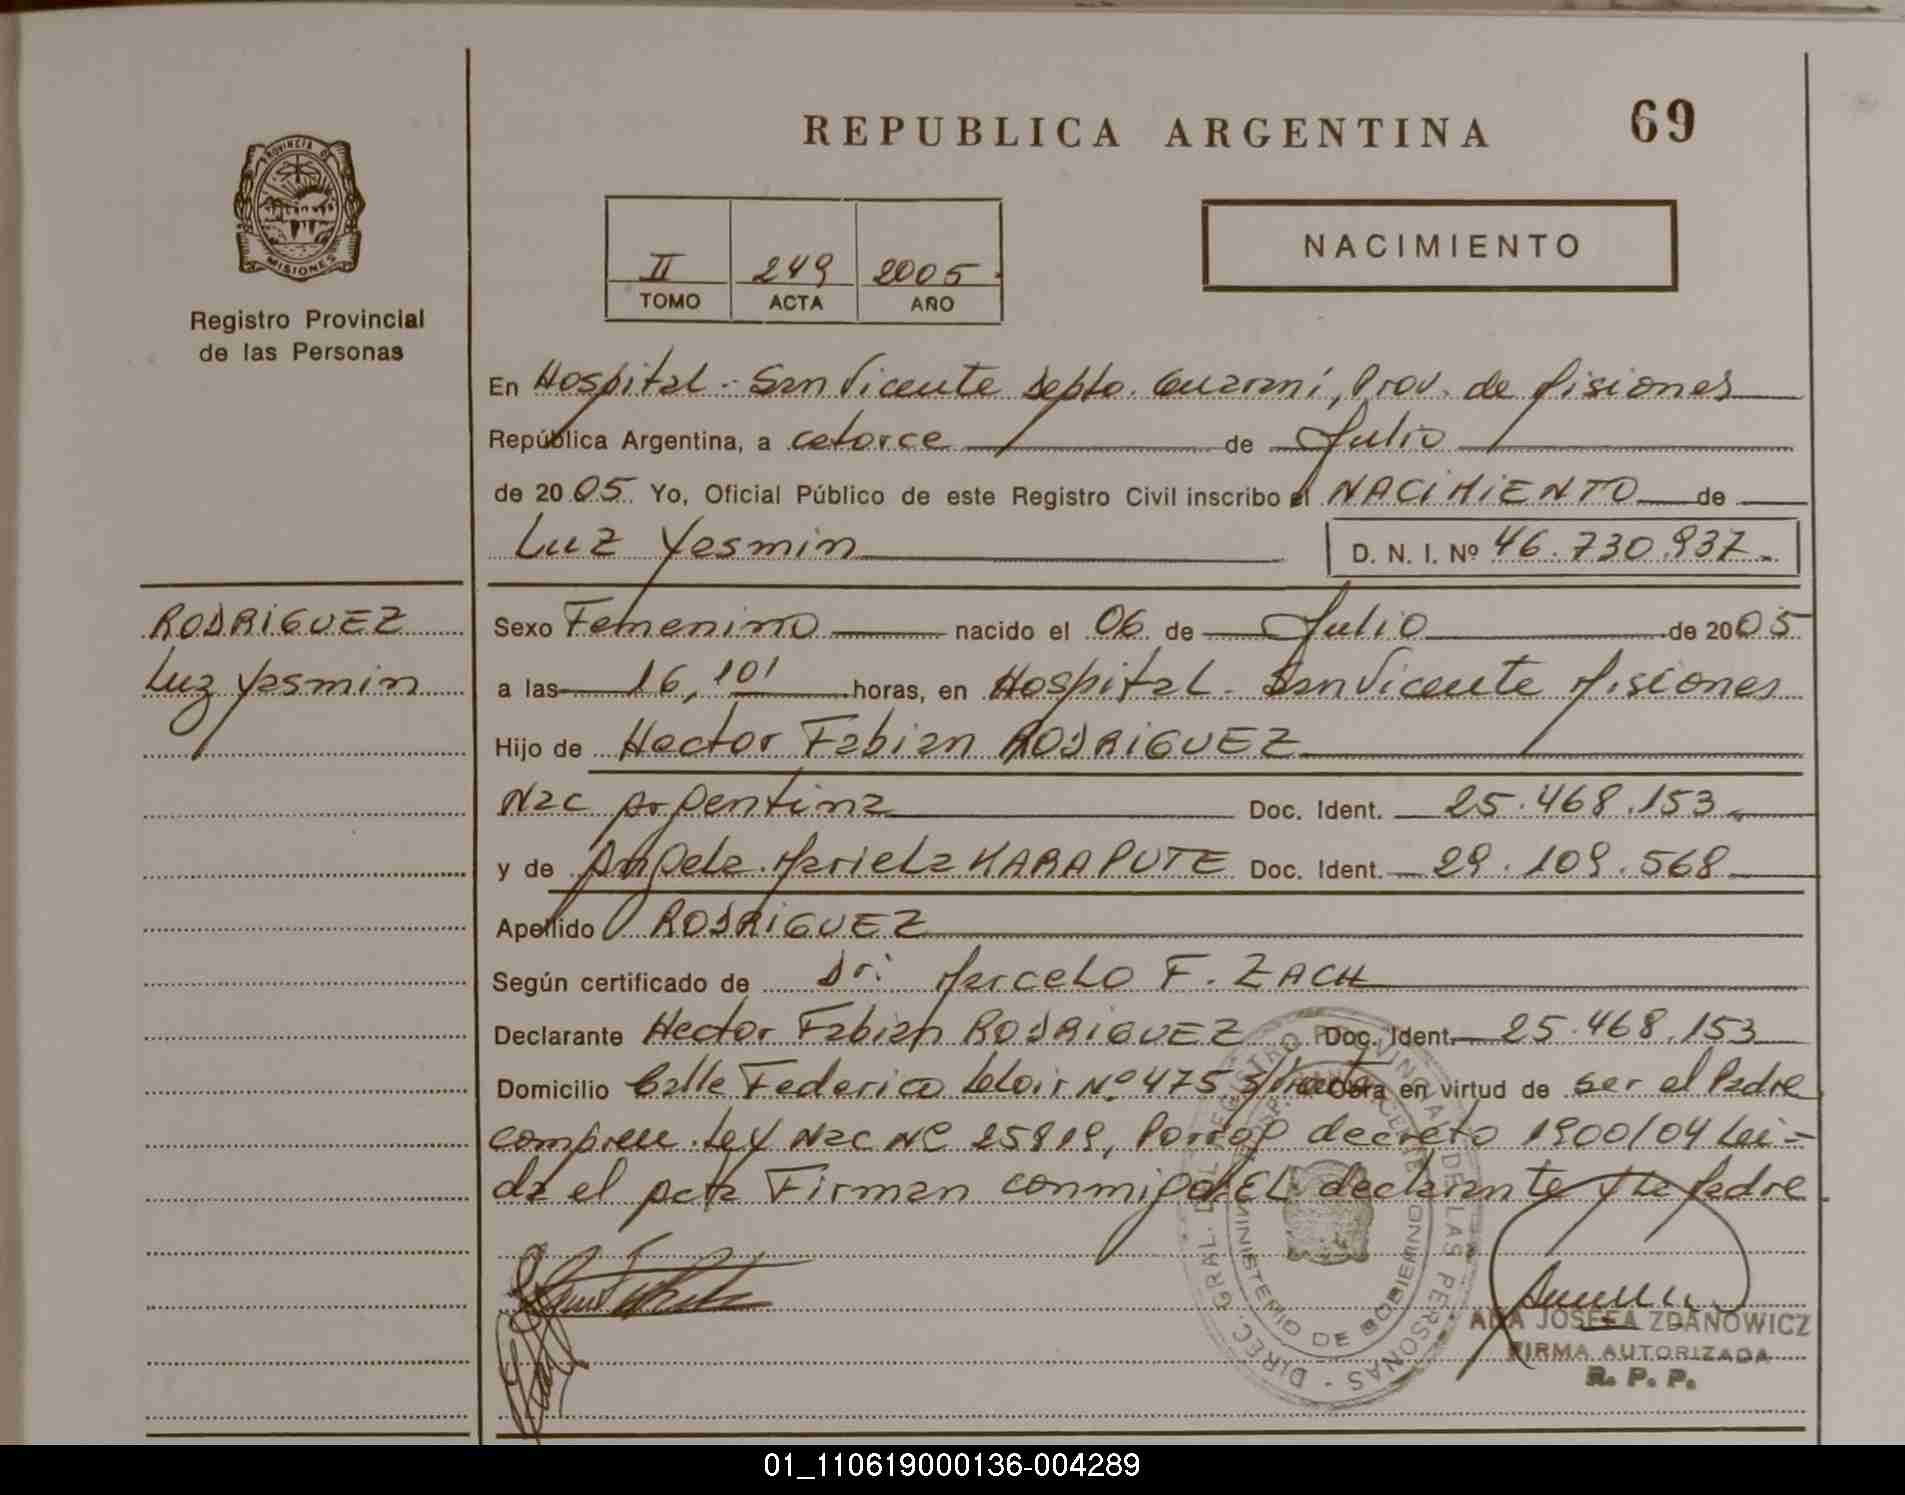 REPUBLICA ARGENTINA
69
PROVINCIA DE
MISIONES
Registro Provincial
de las Personas
II 249 2005
TOMO ACTA AÑO
NACIMIENTO
En Hospital - San Vicente Depto. Guaraní, Prov. de Misiones
República Argentina, a catorce de Julio
de 2005. Yo, Oficial Público de este Registro Civil inscribo el NACIMIENTO de
Luz Yasmin D. N. I. Nº 46.730.937
RODRIGUEZ
Luz Yasmin
Sexo Femenino nacido el 06 de Julio de 2005
a las 16,10' horas, en Hospital - San Vicente Misiones
Hijo de Hector Fabian RODRIGUEZ
Nac Argentina Doc. Ident. 25.468.153
y de Angela Mariela KARAPUTE Doc. Ident. 29.109.568
Apellido RODRIGUEZ
Según certificado de Dr: Marcelo F. ZACH
Declarante Hector Fabian RODRIGUEZ Doc. Ident. 25.468.153
Domicilio Calle Federico Leloir Nº 475 Obra en virtud de ser el Padre
Ley Nac Nº 25819, decreto 1900/04 Lei-
da el acta Firman conmigo EL declarante y la Madre
DIREC. GRAL. DEL REGISTRO PROVINCIAL DE LAS PERSONAS
MINISTERIO DE GOBIERNO
ADA JOSEFA ZDANOWICZ
FIRMA AUTORIZADA
R. P. P.
01_110619000136-004289